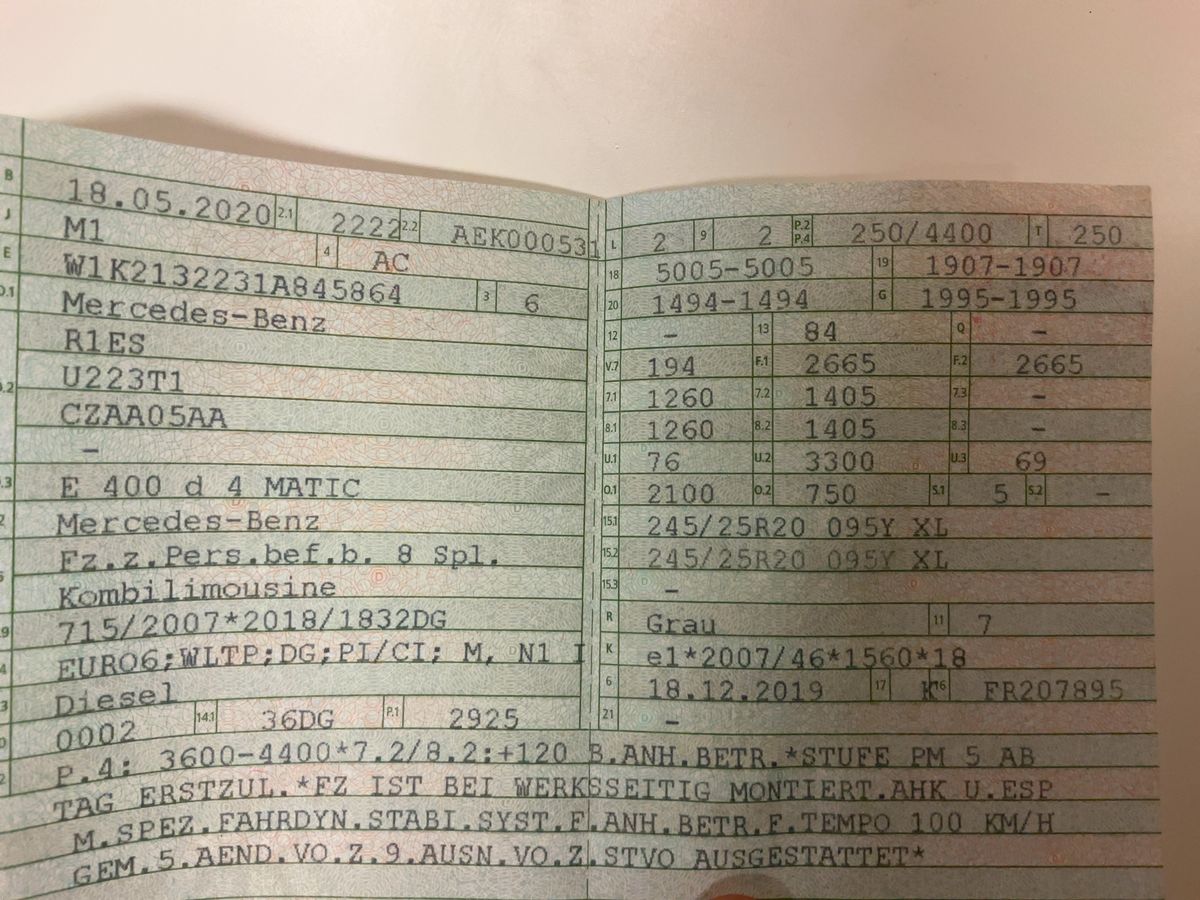 B 18.05.2020 2.1 2222 2.2 AEK000531
J M1 4 AC
E W1K2132231A845864 3 6
D.1 Mercedes-Benz
R1ES
D.2 U223T1
CZAA05AA
–
D.3 E 400 d 4 MATIC
2 Mercedes-Benz
Fz.z.Pers.bef.b. 8 Spl.
5 Kombilimousine
V.9 715/2007*2018/1832DG
14 EURO6;WLTP;DG;PI/CI; M, N1 I
P.3 Diesel
10 0002 14.1 36DG P.1 2925
L 2 9 2 P.2 P.4 250/4400 T 250
18 5005-5005 19 1907-1907
20 1494-1494 G 1995-1995
12 – 13 84 Q –
V.7 194 F.1 2665 F.2 2665
7.1 1260 7.2 1405 7.3 –
8.1 1260 8.2 1405 8.3 –
U.1 76 U.2 3300 U.3 69
O.1 2100 O.2 750 S.1 5 S.2 –
15.1 245/25R20 095Y XL
15.2 245/25R20 095Y XL
15.3 –
R Grau 11 7
K e1*2007/46*1560*18
6 18.12.2019 17 K 16 FR207895
21 –
P.4: 3600-4400*7.2/8.2:+120 B.ANH.BETR.*STUFE PM 5 AB
TAG ERSTZUL.*FZ IST BEI WERKSSEITIG MONTIERT.AHK U.ESP
M.SPEZ.FAHRDYN.STABI.SYST.F.ANH.BETR.F.TEMPO 100 KM/H
GEM.5.AEND.VO.Z.9.AUSN.VO.Z.STVO AUSGESTATTET*